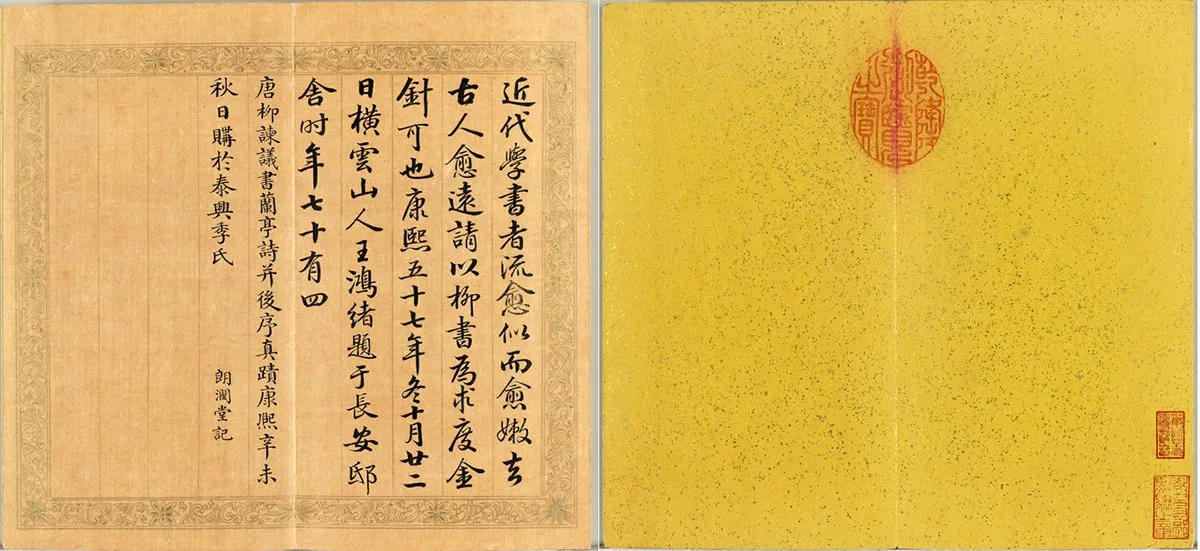 近代学書者流愈似而愈嫩去
古人愈遠請以柳書為求度金
針可也康熙五十七年冬十月廿二
日橫雲山人王鴻緒題于長安邸
舍时年七十有四
唐柳諫議書蘭亭詩并後序真蹟康熙辛未
秋日購於泰興季氏
朗潤堂記